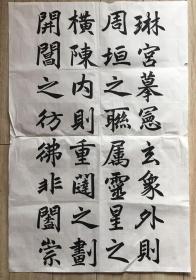 琳宮摹憲玄象外則
周垣之聯属靈星之
橫陳内則重闥之劃
開閶之彷彿非闔崇